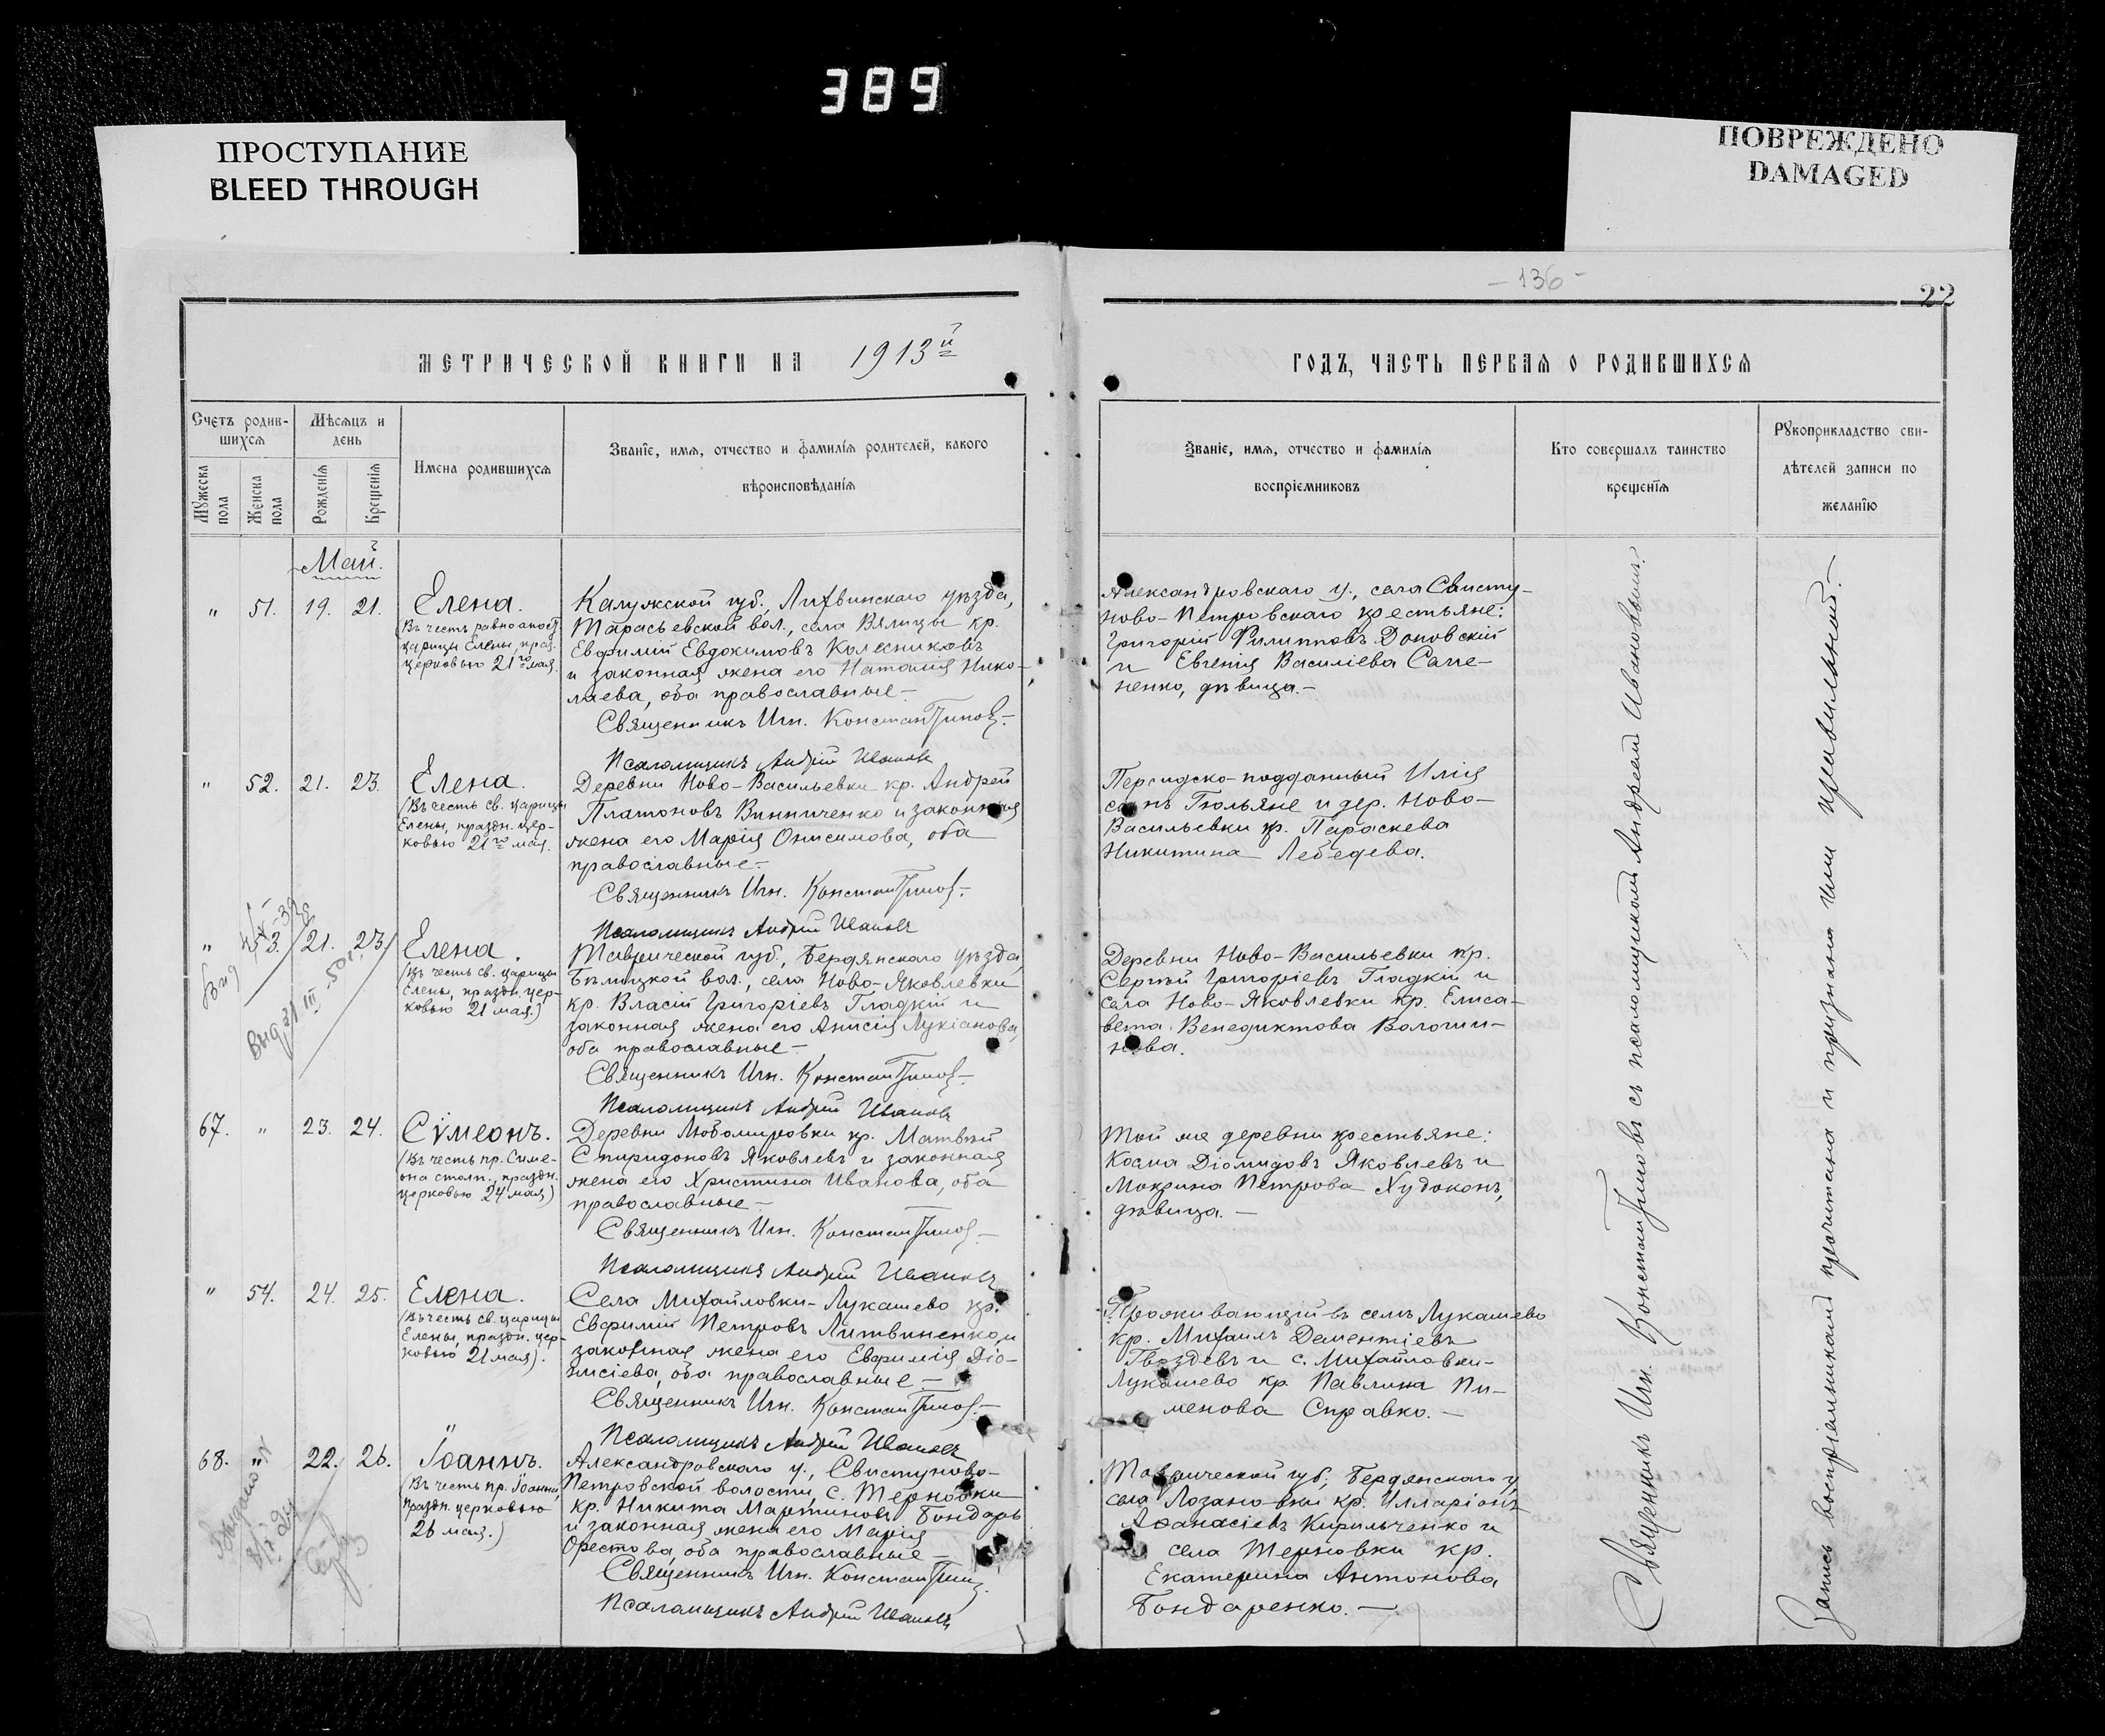 389
ПРОСТУПАНИЕ
BLEED THROUGH
ПОВРЕЖДЕНО
DAMAGED
- 136 -
22
МЕТРИЧЕСКОЙ КНИГИ НА 1913й
ГОДЪ, ЧАСТЬ ПЕРВАЯ О РОДИВШИХСЯ
Счетъ родив-
шихся
Мѣсяцъ и
день
Мужеска
пола
Женска
пола
Рожденія
Крещенія
Имена родившихся
Званіе, имя, отчество и фамилія родителей, какого
вѣроисповѣданія
Званіе, имя, отчество и фамилія
воспріемниковъ
Кто совершалъ таинство
крещенія
Рукоприкладство сви-
дѣтелей записи по
желанію
Май.
" 51. 19. 21.
Елена.
(Въ честь равноапост.
царицы Елены, праз.
церковью 21го мая.
Калужской губ., Лихвинскаго уѣзда,
Тарасьевской вол., села Вялицы кр.
Евфимій Евдокимовъ Колесниковъ
и законная жена его Наталія Нико-
лаева, оба православные –
Священникъ Игн. Константиновъ.
Псаломщикъ Андрей Ивановъ
Александровскаго у., села Свисту-
ново-Петровскаго крестьяне:
Григорій Филипповъ Доновскій
и Евгенія Василіева Сапе-
ненко, дѣвица. –
" 52. 21. 23.
Елена.
(Въ честь св. царицы
Елены, праздн. цер-
ковью 21го мая.
Деревни Ново-Васильевки кр. Андрей
Платоновъ Винниченко и законная
жена его Марія Онисимова, оба
православные –
Священникъ Игн. Константиновъ.
Псаломщикъ Андрей Ивановъ
Персидско-подданный Илія
сынъ Гюльяне и дер. Ново-
Васильевки кр. Параскева
Никитина Лебедева.
" 53. 21. 23.
Елена.
(Въ честь св. царицы
Елены, праздн. цер-
ковью 21 мая.)
Таврической губ., Бердянскаго уѣзда,
вол., села Ново-Яковлевки
кр. Власій Григоріевъ Гладкій и
законная жена его Анисія Лукіанова,
оба православные –
Священникъ Игн. Константиновъ.
Псаломщикъ Андрей Ивановъ
Деревни Ново-Васильевки кр.
Сергѣй Григоріевъ Гладкій и
села Ново-Яковлевки кр. Елиса-
вета Венедиктова Волоши-
нова.
67. " 23. 24.
Сѵмеонъ.
(Въ честь пр. Симе-
она столп., праздн.
церковью 24 мая)
Деревни Любомировки кр. Матвѣй
Спиридоновъ Яковлевъ и законная
жена его Христина Иванова, оба
православные –
Священникъ Игн. Константиновъ.
Псаломщикъ Андрей Ивановъ
Той же деревни крестьяне:
Косма Діомидовъ Яковлевъ и
Мокрина Петрова Худоконь,
дѣвица. –
" 54. 24. 25.
Елена.
(Въ честь св. царицы
Елены, праздн. цер-
ковью 21 мая).
Села Михайловки-Лукашево кр.
Евфимій Петровъ Литвиненко и
законная жена его Евфимія Діо-
нисіева, оба православные –
Священникъ Игн. Константиновъ. –
Псаломщикъ Андрей Ивановъ
Проживающій въ селѣ Лукашево
кр. Михаилъ Дементіевъ
Гвоздевъ и с. Михайловки-
Лукашево кр. Павлина Пи-
менова Справко. –
68. " 22. 26.
Іоаннъ.
(Въ честь пр. Іоанна,
праздн. церковью
26 мая.)
Александровскаго у., Свистуново-
Петровской волости, с. Терновки
кр. Никита Мартиновъ Бондарь
и законная жена его Марія
Орестова, оба православные –
Священникъ Игн. Константиновъ.
Псаломщикъ Андрей Ивановъ
Таврической губ., Бердянскаго у,
села кр. Илларіонъ
Аѳанасіевъ Кирильченко и
села Терновки кр.
Екатерина Антонова
Бондаренко. –
Священникъ Игн. Константиновъ съ псаломщикомъ Андреемъ Ивановымъ.
Запись воспріемниками прочитана и признана ими правильной. –